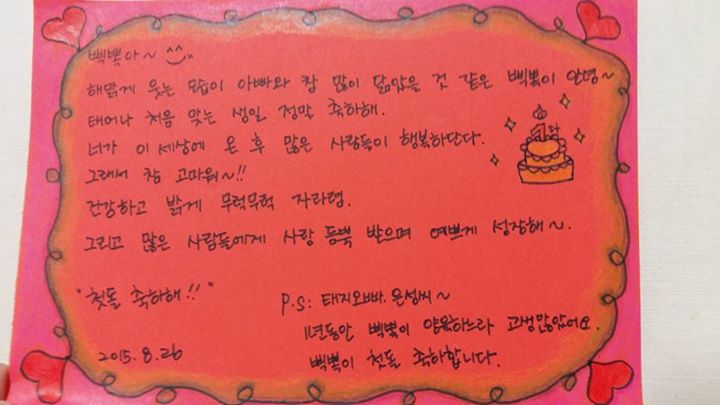 삑뽁아~ ^^
해맑게 웃는 모습이 아빠와 참 많이 닮았을 것 같은 삑뽁이 안녕~
태어나 처음 맞는 생일 정말 축하해.
너가 이 세상에 온 후 많은 사람들이 행복하단다.
그래서 참 고마워~!!
건강하고 밝게 무럭무럭 자라렴.
그리고 많은 사람들에게 사랑 듬뿍 받으며 예쁘게 성장해~.
"첫돌 축하해!!"
P.S: 태지오빠. 은성씨~
1년동안 삑뽁이 양육하느라 고생많았어요.
삑뽁이 첫돌 축하합니다.
2015. 8. 26